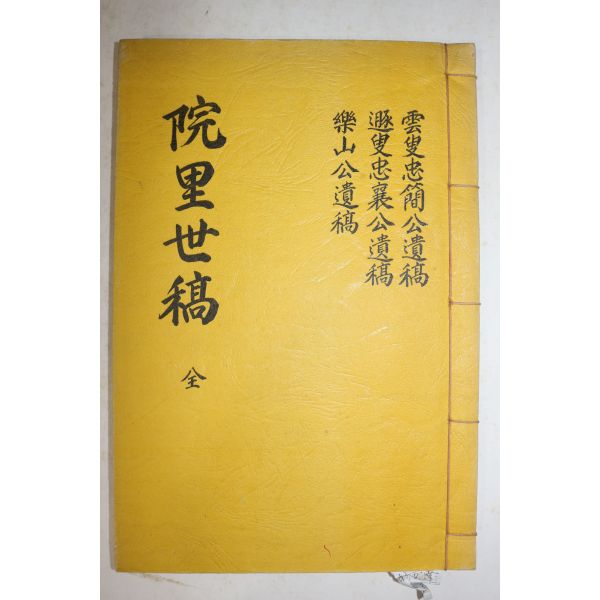 雲叟忠簡公遺稿
遯叟忠襄公遺稿
樂山公遺稿
院里世稿
全